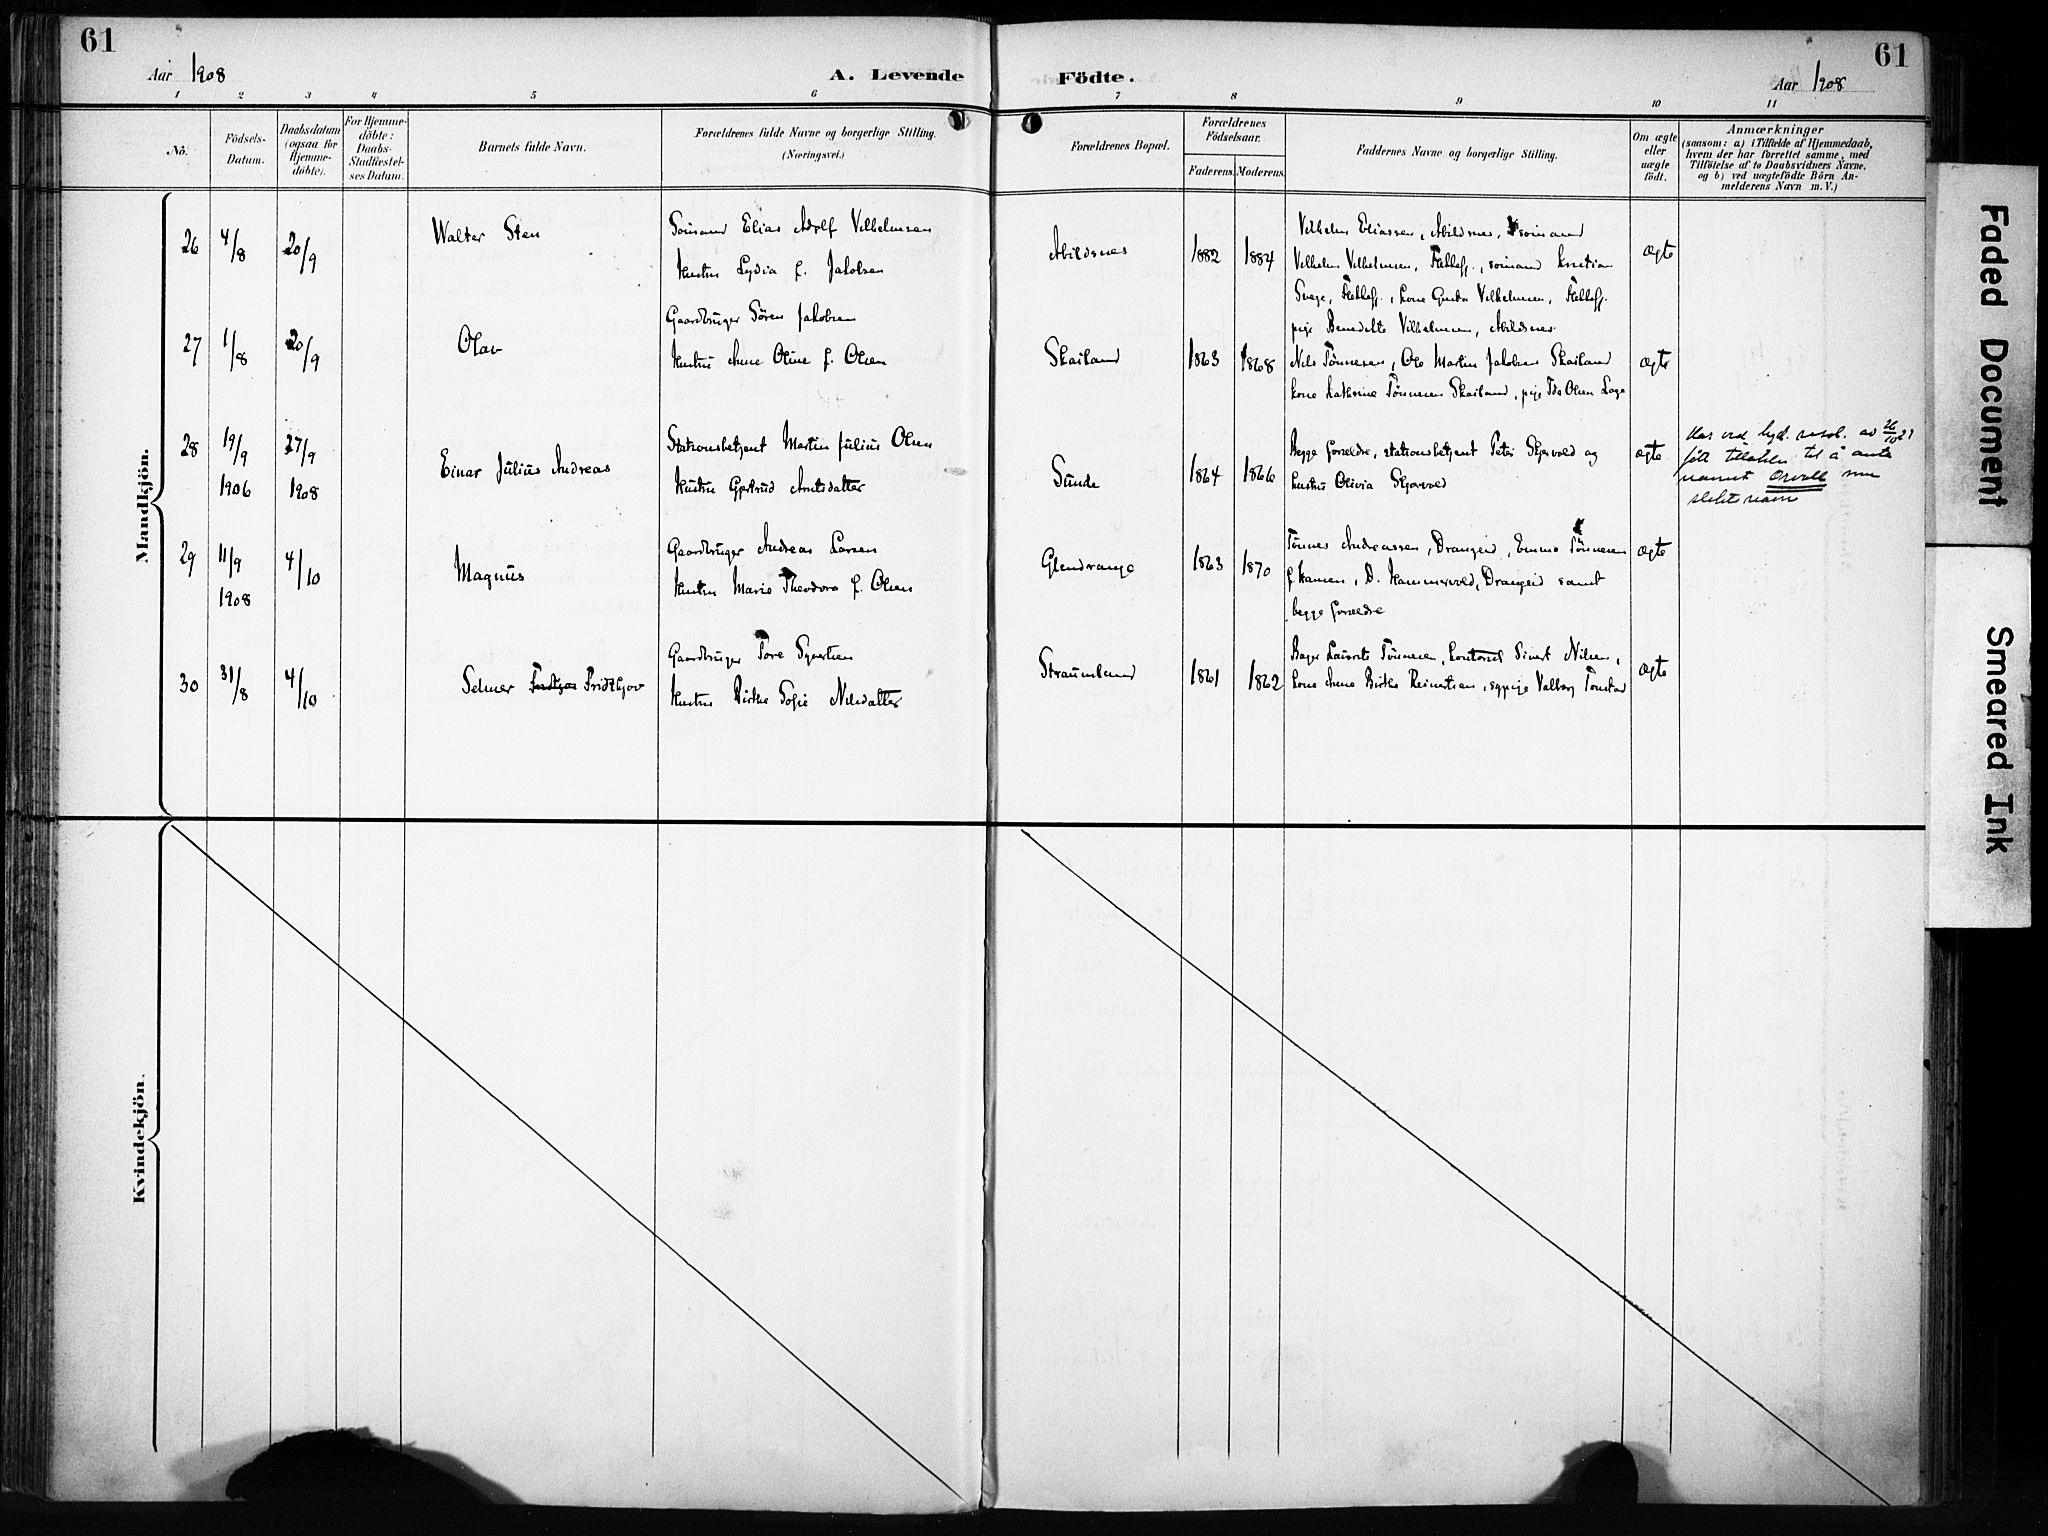 61
Aar 1908
A. Levende
Födte.
61
Aar 1908
1 2 3 4 5 6 7 8 9 10 11
No.
Födsels-
Datum.
Daabsdatum
(ogsaa for
Hjemme-
döbte).
For Hjemme-
döbte:
Daabs-
Stadfæstel-
ses Datum.
Barnets fulde Navn.
Forældrenes fulde Navne og borgerlige Stilling.
(Næringsvei.)
Forældrenes Bopæl.
Forældrenes
Födselsaar.
Faderens. Moderens.
Faddernes Navne og borgerlige Stilling.
Om ægte
eller
uægte
födt.
Anmærkninger
(saasom: a) i Tilfælde af Hjemmedaab,
hvem der har forrettet samme, med
Tilföielse af to Daabsvidners Navne,
og b) ved uægtefödte Börn An-
melderens Navn m. V.)
Mandkjön.
26 4/8 20/9
Walter Sten
Sömand Elias Adolf Vilhelmsen
Hustru Lydia f. Jakobsen
Abildsnes
1882 1884
Vilhelm Eliassen, Abildsnes, sömand
Vilhelm Vilhelmsen, Flekkefj., sömand Kristian
Svege, Flekkefj., kone Gusta Vilhelmsen, Flekkefj.
pige Benedikte Vilhelmsen, Abildsnes.
ægte
27 1/8 20/9
Olav
Gaardbruger Sören Jakobsen
Hustru Anne Oline f. Olsen
Skailand
1863 1868
Nils Tönnesen, Ole Martin Jakobsen Skailand
kone Kathrine Tönnesen Skailand, pige Ida Olsen Laga
ægte
28 19/9 1906 27/9 1908
Einar Julius Andreas
Stationsbetjent Martin Julius Olsen
Hustru Gertrud Arntsdatter
Sunde
1864 1866
Begge forældre, stationsbetjent Peter Skjervold og
hustru Olivia Skjervold
ægte
Har ved kgl. resol. av 26/10 21
fått tillatelse til å anta
navnet Osvoll som
slektsnavn
29 11/9 1908 4/10
Magnus
Gaardbruger Andreas Larsen
Hustru Marie Theodora f. Olsen
Glendrange
1863 1870
Tönnes Andreassen, Drangeid, Emma Tönnesen
f. Hansen, D. Hammervold, Drangeid samt
begge forældre
ægte
30 31/8 4/10
Selmer Fridtjov
Gaardbruger Tore Syvertsen
Hustru Birthe Sofie Nilsdatter
Straumland
1861 1862
Bager Laurits Tönnesen, kontorist Sivert Nilsen,
kone Anne Birthe Reinertsen, sypige Valborg Tonstad
ægte
Kvindekjön.
Faded Document
Smeared Ink